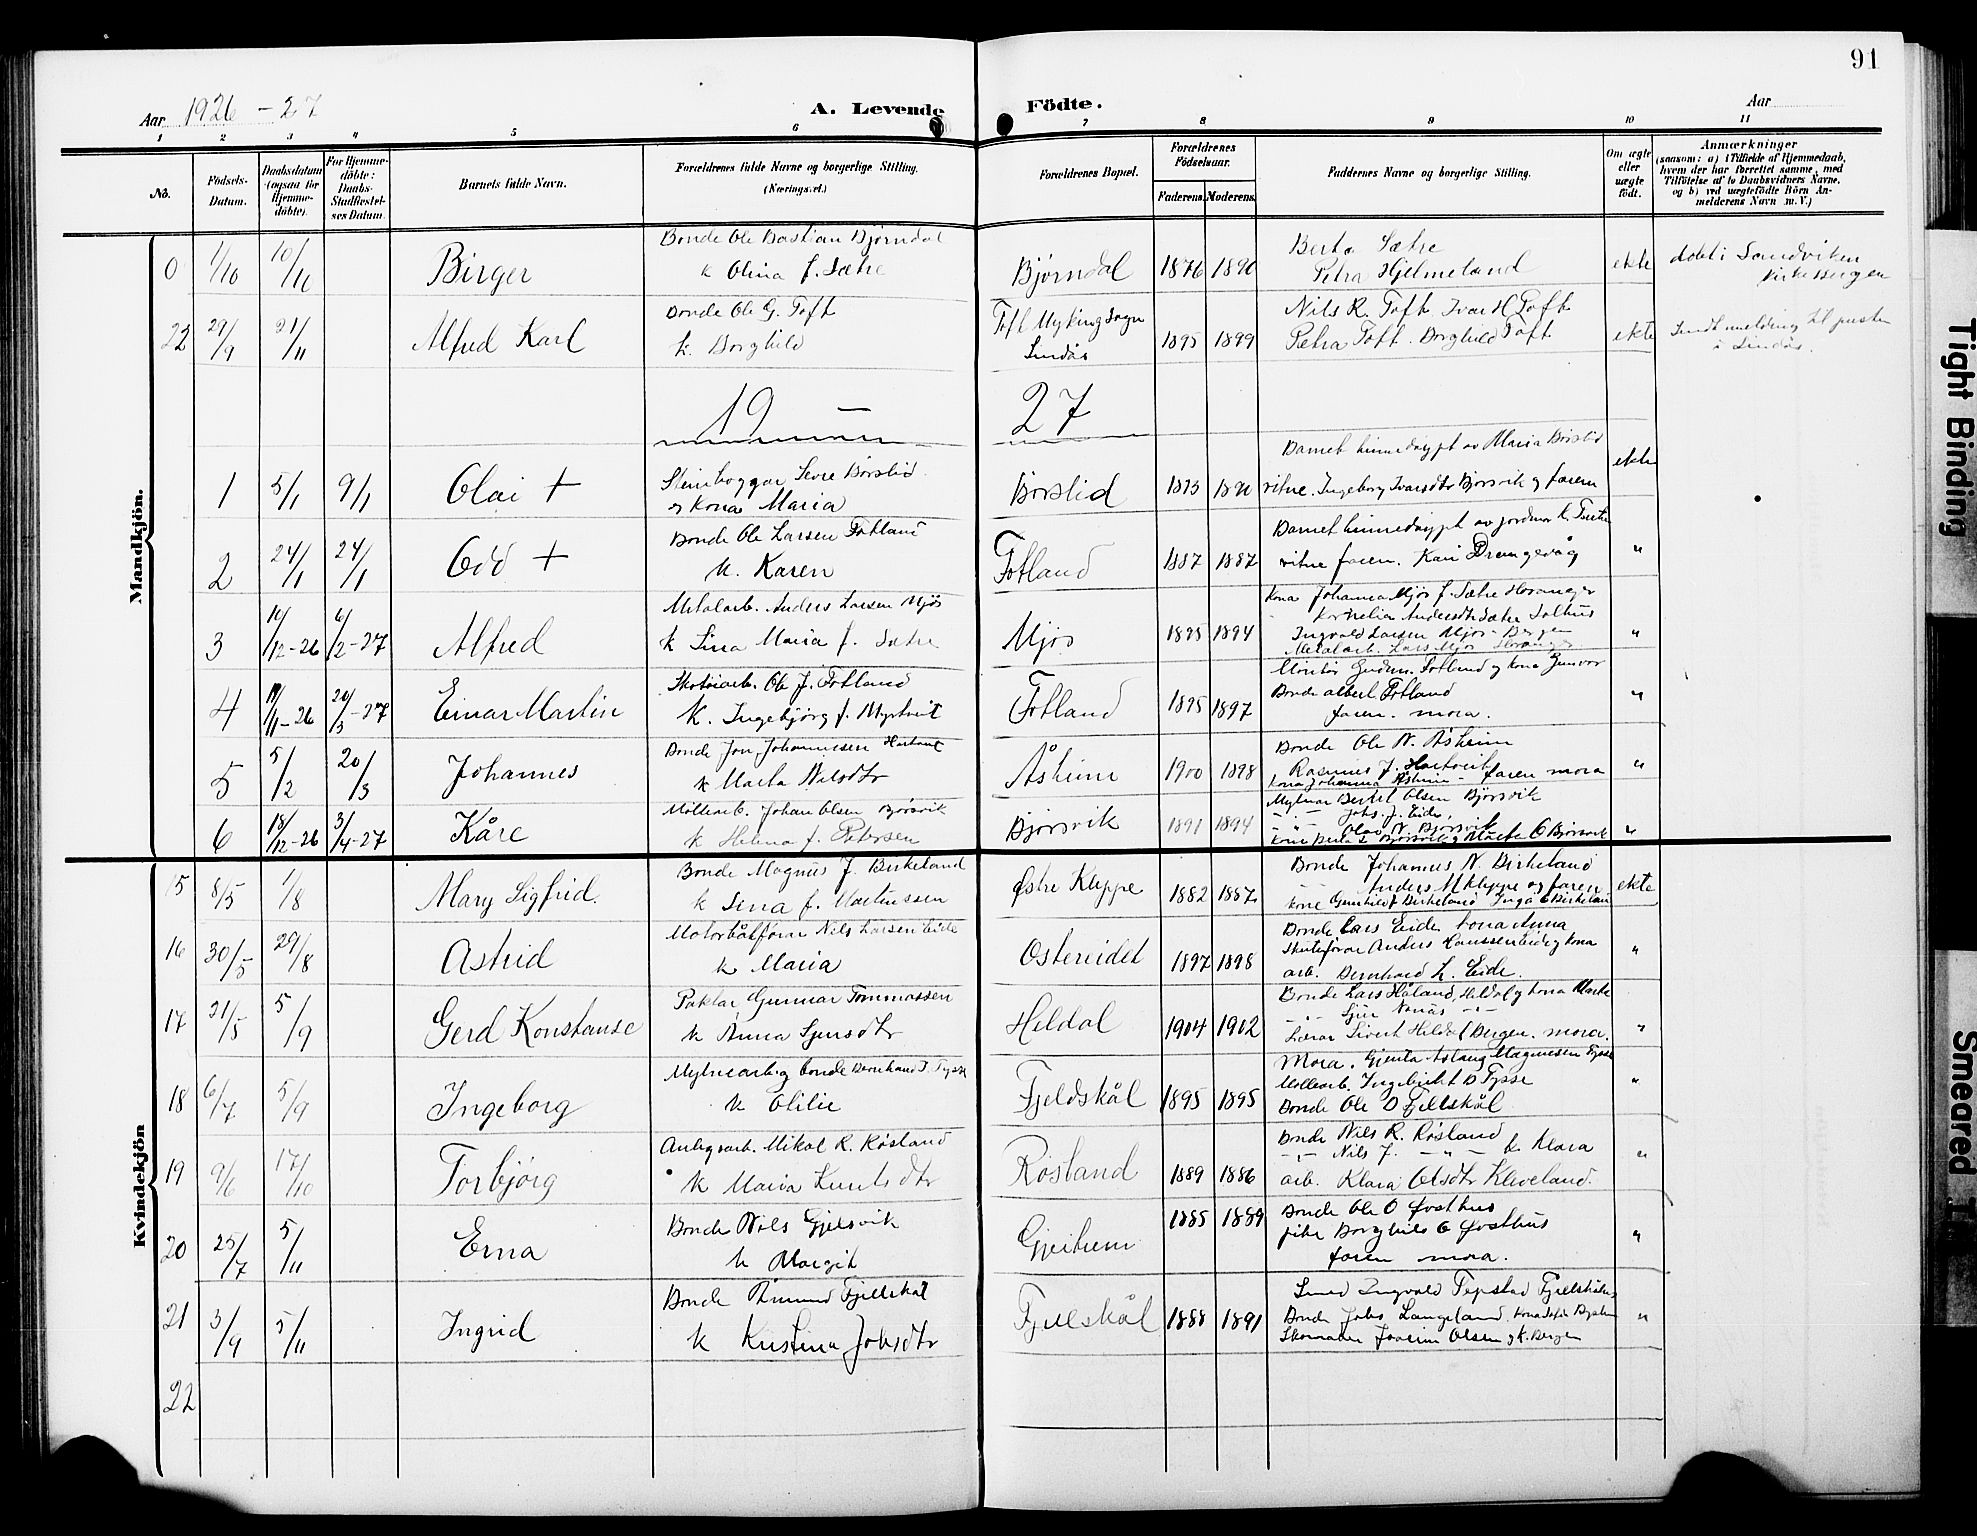 91
Aar 1926 - 27
A. Levende Födte.
Aar
1 2 3 4 5 6 7 8 9 10 11
No.
Födsels-Datum.
Daabsdatum (ogsaa for Hjemme-döbte).
For Hjemme-döbte: Daabs-Stadfæstel-ses Datum.
Barnets fulde Navn.
Forældrenes fulde Navne og borgerlige Stilling. (Næringsvei.)
Forældrenes Bopæl.
Forældrenes Födselsaar.
Faderens. Moderens.
Faddernes Navne og borgerlige Stilling.
Om ægte eller uægte födt.
Anmærkninger (saasom: a) i Tilfælde af Hjemmedaab, hvem der har forrettet samme, med Tilföielse af to Daabsvidners Navne, og b) ved uægtefödte Börn An-melderens Navn m. V.)
Mandkjön.
0 1/10 10/10 Birger
Bonde Ole Bastian Bjørndal
k Olina f. Sætre
Bjørndal 1876 1890
Berta Sætre
Petra Hjelmeland
ekte
döbt i Sandviken
Kirke Bergen
22 29/9 21/11 Alfred Karl
Bonde Ole G. Toft
k. Borghild
Toft Myking Sogn
Lindås
1895 1899
Nils R. Toft Ivar H Toft
Petra Toft. Borghild Toft
ekte
Sendt melding til presten
i Lindås.
19 — 27
1 5/1 9/1 Olai +
Børslid
og kona Maria
Børslid 1873
Barnet av Maria Børslid
vitne. Ingeborg Ivarsdtr Bjørsvik og faren
ekte
2 24/1 24/1 Odd +
Bonde Ole Larsen Fotland
k. Karen
Fotland 1887 1887
Barnet av jordmor K.
vitne faren. Kari Drangevåg
"
3 10/12-26 6/2-27 Alfred
Metalarb. Anders Larsen Mjös
k Lina Maria f. Sætre
Mjös 1895 1894
kona Johanna Mjös f. Sætre Hosanger
Kornelia Andersdtr Sætre Salhus
Ingvald Larsen Mjös - Bergen
Metalarb. Lars Mjös
"
4 11/11-26 20/3-27 Einar Martin
Skotöiarb. Ole J. Fotland
k. Ingebjörg f. Myrtveit
Fotland 1895 1897
Fotland og kona Gunvor
Bonde Albert Fotland
faren. mora.
"
5 5/2 20/3 Johannes
Bonde Jon Johannesen Hartveit
k Marta Nilsdtr
Åsheim 1900 1898
Bonde Ole N. Åsheim
Rasmus J. Hartveit
kona Johanna Åsheim - faren mora
"
6 18/12-26 3/4-27 Kåre
Möllearb. Johan Olsen Bjørsvik
k Helena f. Petersen
Bjørsvik 1891 1894
Bertel Olsen Bjørsvik
Johs. J. Eide,
Olav N. Bjørsvik
Bjørsvik og Marta O Bjørsvik
"
Kvindekjön
15 8/5 1/8 Mary Sigfrid.
Bonde Magnus J. Birkeland
k Lina f. Martinssen
Østre Kleppe 1882 1887
Bonde Johannes N. Birkeland
Anders M Kleppe og faren
kone Gunhild J Birkeland Inga O Birkeland
ekte
16 30/5 29/8 Astrid
Motorbåtförar Nils Larsen Eide
k Maria
Ostereidet 1897 1898
Bonde Lars Eide kona Anna
Skuteförar Anders Hanssen Eide og kona
arb. Bernhard L. Eide.
"
17 21/5 5/9 Gerd Konstanse
Paktar Gunnar Tommassen
k Anna Sjursdtr
Heldal 1904 1902
Bonde Lars Håland, Heldal og kona Marta
Sjur
Lærar Sivert Heldal Bergen. mora.
"
18 6/7 5/9 Ingeborg
Mylnearb og bonde Bernhard I. Tysse
k Otilie
Fjeldskål 1895 1895
Mora. Gjenta Aslaug Magnesen Tysse
Möllearb. Ingebrikt B Tysse
Bonde Ole O Fjellskål
"
19 9/6 17/10 Torbjörg
Anlegsarb. Mikal R. Røsland
k Maria Knutsdtr
Røsland 1889 1886
Bonde Nils R. Røsland
-"- Nils J. -"- k. Klara
arb. Klara Olsdtr Kleveland.
"
20 25/7 5/11 Erna
Bonde Nils Gjelsvik
k Margit
Gjeitrem 1885 1889
Bonde Ole O Øvsthus
pike Borghild O Øvsthus
faren mora.
"
21 3/9 5/11 Ingrid
Bonde Åmund Fjellskål
k Kristina Jobsdtr
Fjellskål 1888 1891
Smed Ingvald Tepstad Fjellskål
Bonde Johs Langeland.
Skomaker Joakim Olsen og k. Bergen
"
22
Tight Binding
Smeared I